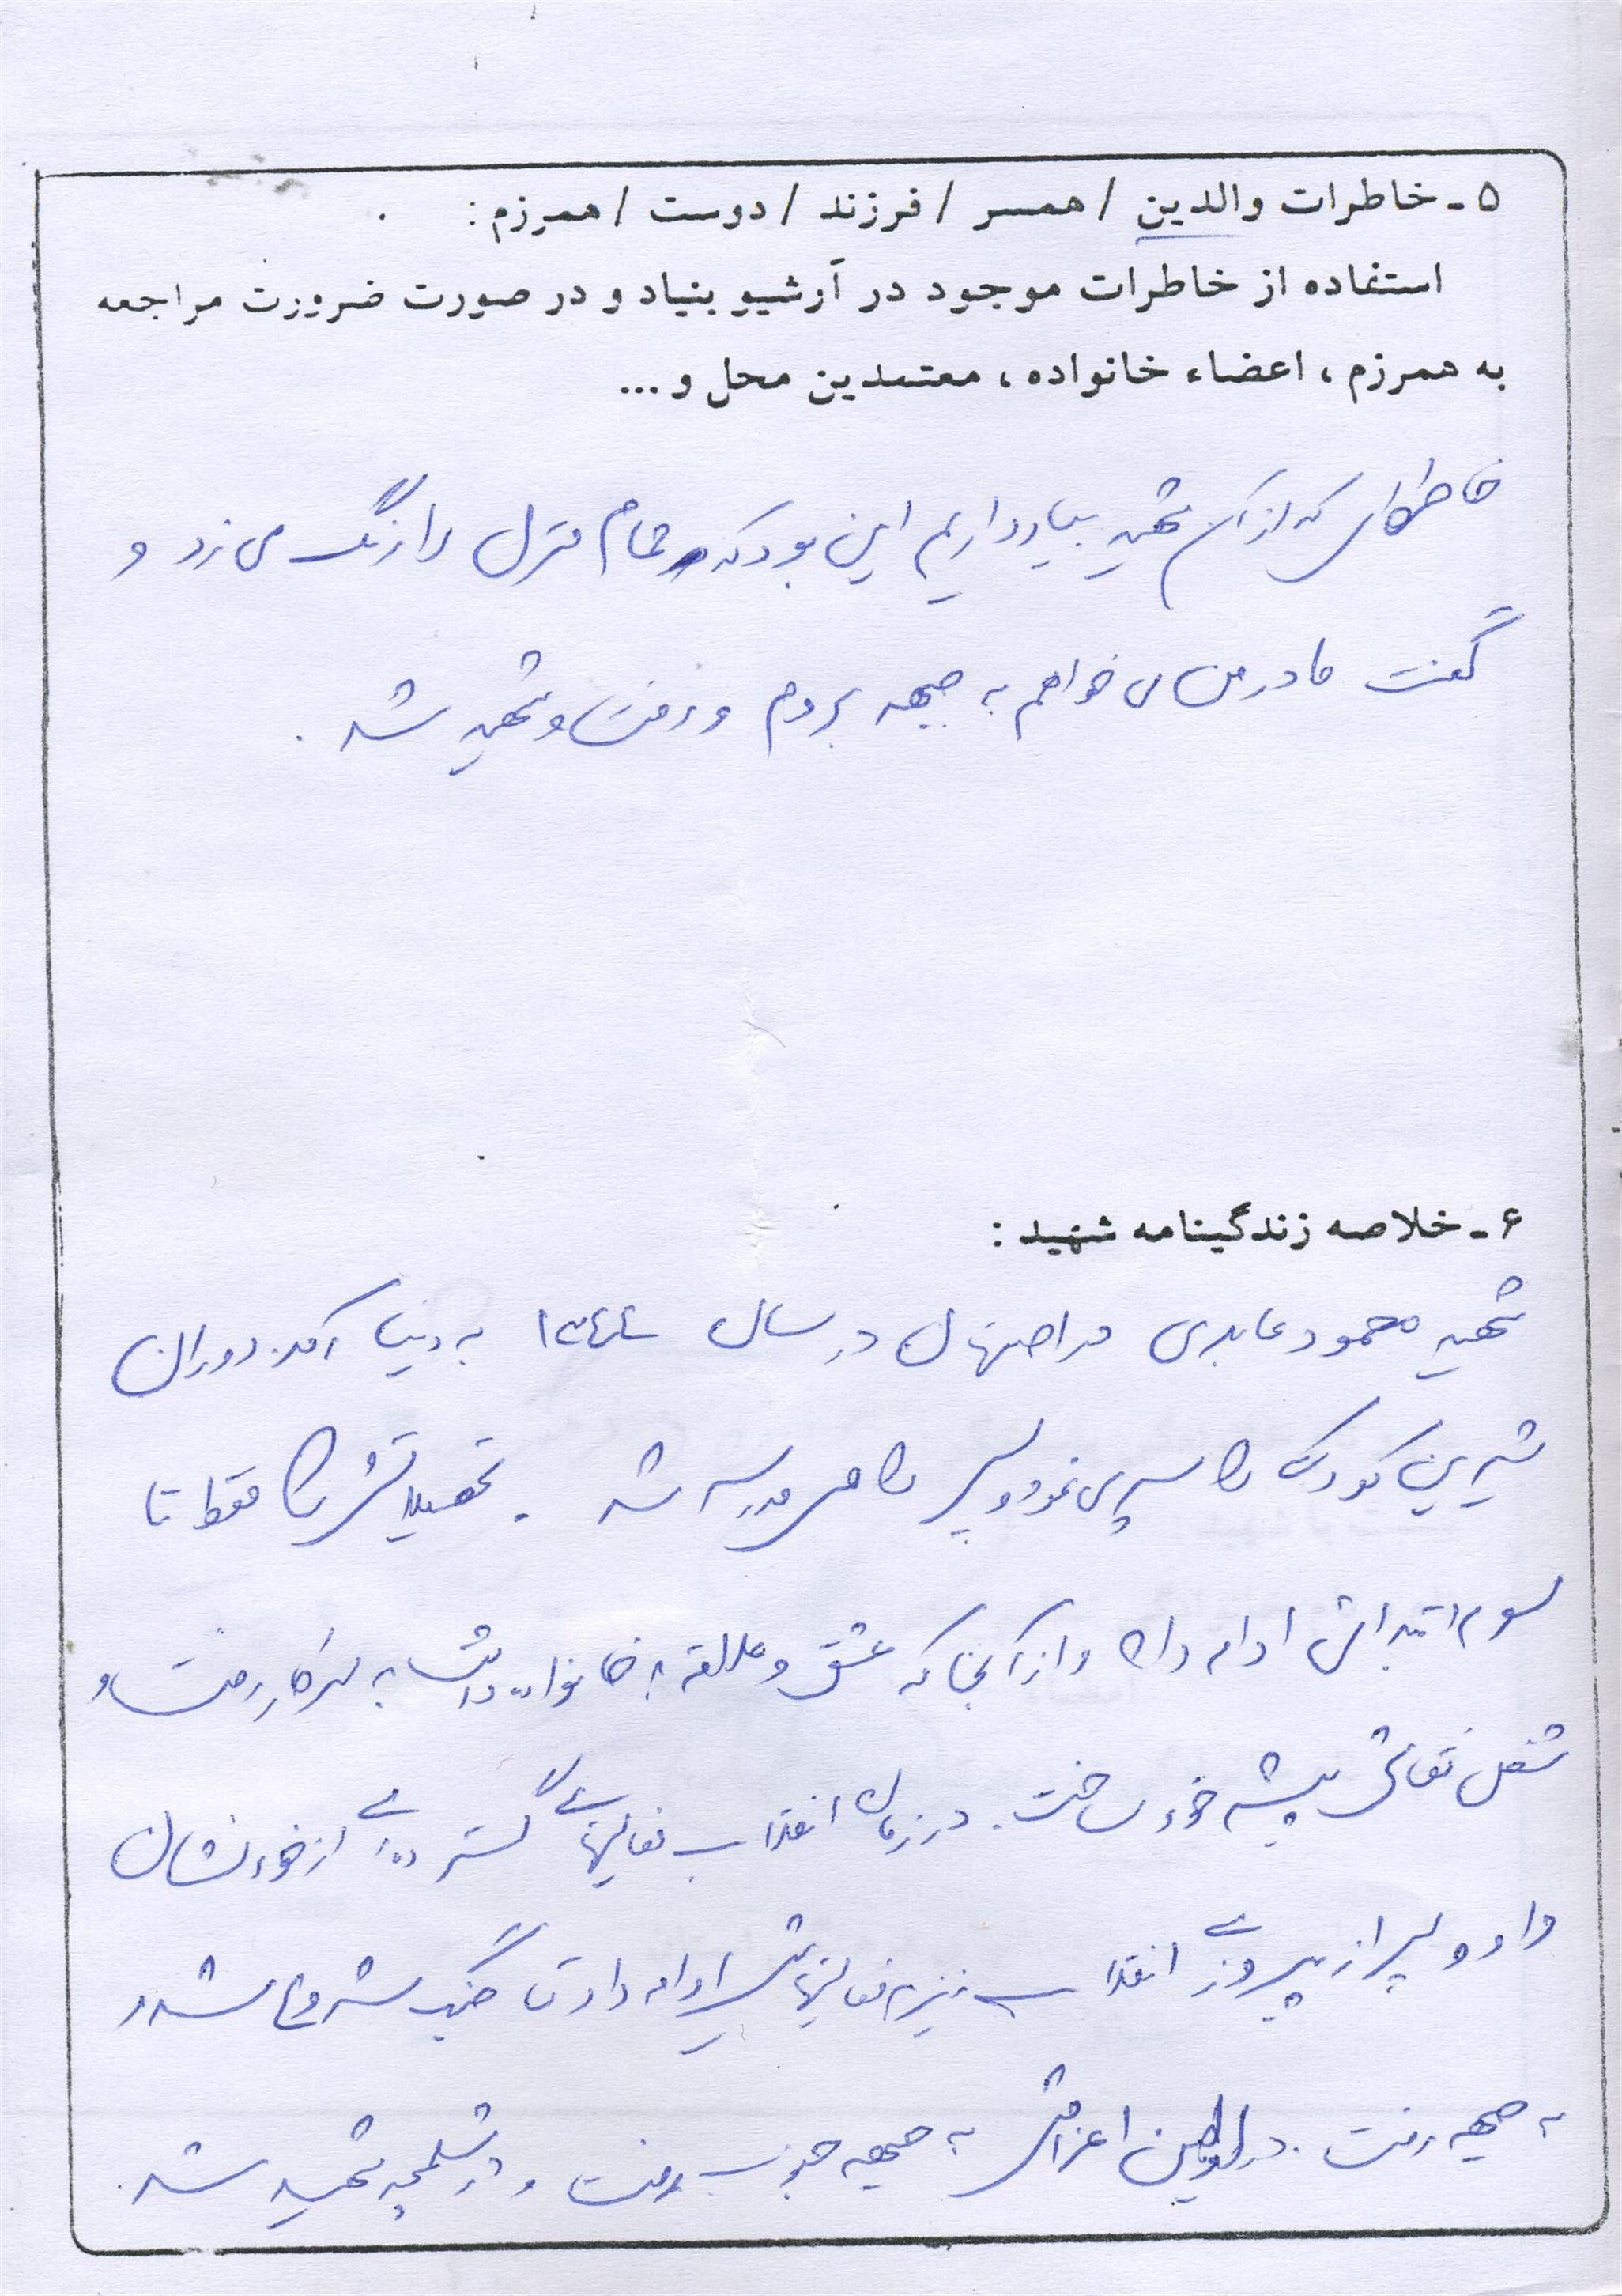 ۵ - خاطرات والدین / همسر / فرزند / دوست / همرزم :
استفاده از خاطرات موجود در آرشیو بنیاد و در صورت ضرورت مراجعه
به همرزم ، اعضاء خانواده ، معتمدین محل و ...
خاطره‌ای که از آن شهید بیاد داریم این بود که حمام منزل را رنگ می زد و
گفت مادر من می خواهم به جبهه بروم و رفت و شهید شد .
۶ - خلاصه زندگینامه شهید :
شهید محمود عابدی در اصفهان در سال ۱۳۴۴ به دنیا آمد. دوران
شیرین کودکی را سپری نمود و سپس راهی مدرسه شد . تحصیلاتش را فقط تا
سوم ابتدائی ادامه داد و از آنجا که عشق و علاقه به خانواده داشت به سر کار رفت و
شغل نقاشی پیشه خود ساخت. در زمان انقلاب فعالیتهای گسترده‌ای از خود نشان
داد و پس از پیروزی انقلاب نیز به فعالیتهایش ادامه داد تا جنگ شروع شد و
به جبهه رفت . در اولین اعزامش به جبهه جنوب رفت و در شلمچه شهید شد.